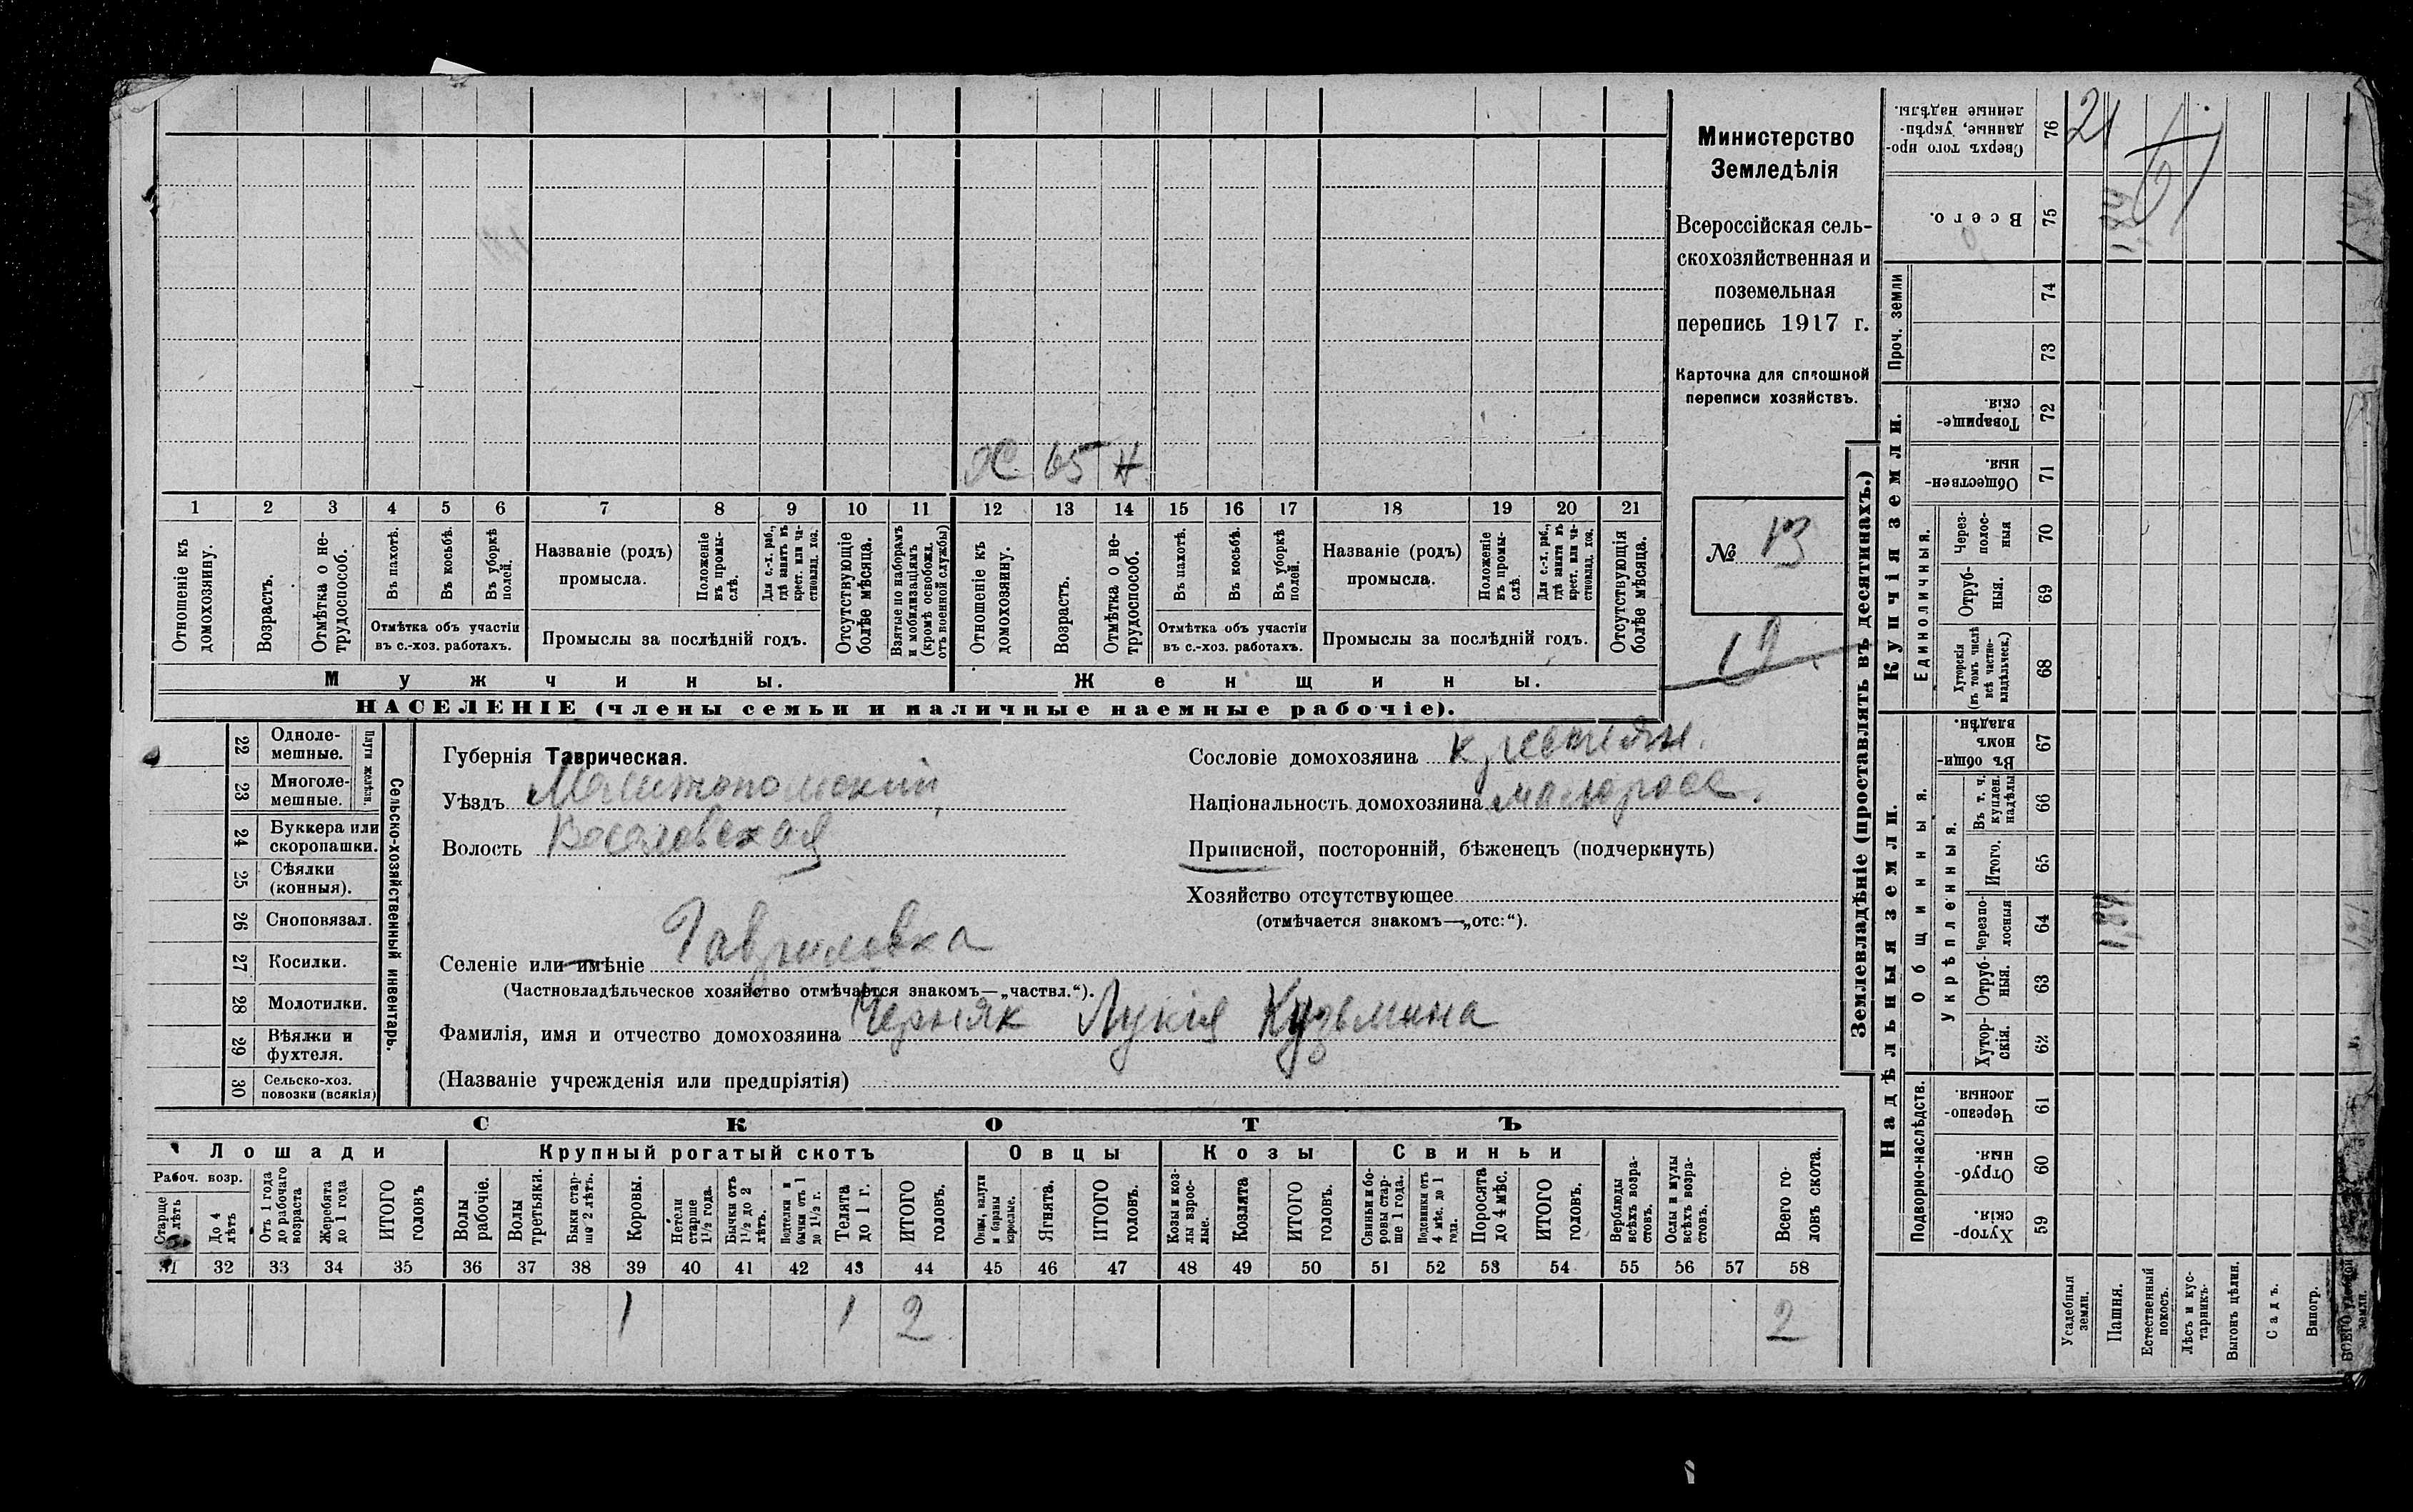 Министерство
Земледѣлія
Всероссійская сель-
скохозяйственная и
поземельная
перепись 1917 г.
Карточка для сплошной
переписи хозяйствъ.
№ 13
Х 65 Н
1 2 3 4 5 6 7 8 9 10 11 12 13 14 15 16 17 18 19 20 21
Отношеніе къ домохозяину.
Возрастъ.
Отмѣтка о не-трудоспособ.
Въ пахотѣ.
Въ косьбѣ.
Въ уборкѣ полей.
Отмѣтка объ участіи въ с.-хоз. работахъ.
Названіе (родъ) промысла.
Положеніе въ промы-слѣ.
Для с.-х. раб., гдѣ занятъ въ крест. или ча-стновлад. хоз.
Промыслы за послѣдній годъ.
Отсутствующіе болѣе мѣсяца.
Взятые по наборамъ и мобилизаціямъ (кромѣ освобожд. отъ военной службы)
Отношеніе къ домохозяину.
Возрастъ.
Отмѣтка о не-трудоспособ.
Въ пахотѣ.
Въ косьбѣ.
Въ уборкѣ полей.
Отмѣтка объ участіи въ с.-хоз. работахъ.
Названіе (родъ) промысла.
Положеніе въ промы-слѣ.
Для с.-х. раб., гдѣ занята въ крест. или ча-стновлад. хоз.
Промыслы за послѣдній годъ.
Отсутствующія болѣе мѣсяца.
Мужчины.
Женщины.
НАСЕЛЕНІЕ (члены семьи и наличные наемные рабочіе).
22 Одноле-мешные.
23 Многоле-мешные.
Плуги желѣзн.
24 Буккера или скоропашки.
25 Сѣялки (конныя).
26 Сноповязал.
27 Косилки.
28 Молотилки.
29 Вѣялки и фухтеля.
30 Сельско-хоз. повозки (всякія)
Сельско-хозяйственный инвентарь.
Губернія Таврическая.
Уѣздъ Мелитопольскій
Волость Веселовская
Сословіе домохозяина крестьян.
Національность домохозяина малоросс.
Приписной, посторонній, бѣженецъ (подчеркнуть)
Хозяйство отсутствующее
(отмѣчается знакомъ—„отс:“).
Селеніе или имѣніе Гавриловка
(Частновладѣльческое хозяйство отмѣчается знакомъ—„частвл.“).
Фамилія, имя и отчество домохозяина Черняк Лукія Кузьмина
(Названіе учрежденія или предпріятія)
СКОТЪ
Лошади
Крупный рогатый скотъ
Овцы
Козы
Свиньи
Рабоч. возр.
Старше лѣтъ
До 4 лѣтъ
Отъ 1 года до рабочаго возраста
Жеребята до 1 года
ИТОГО головъ
Волы рабочіе.
Волы третьяки.
Быки стар-ше 2 лѣтъ.
Коровы.
Нетели старше 1½ года.
Бычки отъ 1½ до 2 лѣтъ.
Подтелки и бычки отъ 1 до 1½ г.
Телята до 1 г.
ИТОГО головъ.
Овцы, валухи и бараны взрослые.
Ягнята.
ИТОГО головъ.
Козы и коз-лы взрос-лые.
Козлята
ИТОГО головъ.
Свиньи и бо-ровы стар-ше 1 года.
Подсвинки отъ 4 мѣс. до 1 года.
Поросята до 4 мѣс.
ИТОГО головъ.
Верблюды всѣхъ возра-стовъ.
Ослы и мулы всѣхъ возра-стовъ.
Всего го-ловъ скота.
31 32 33 34 35 36 37 38 39 40 41 42 43 44 45 46 47 48 49 50 51 52 53 54 55 56 57 58
1 1 2 2
Землевладѣніе (проставлять въ десятинахъ.)
Надѣльныя земли.
Купчія земли.
Проч. земли
Подворно-наслѣдств.
Общинныя.
Укрѣпленныя.
Единоличныя.
Сверхъ того про-данные, укрѣп-ленные надѣлы. 76
Всего. 75
74
73
Товарище-скія. 72
Обществен-ныя. 71
Через-полос-ныя 70
Отруб-ныя. 69
Хуторскія (въ томъ числѣ всѣ частно-владѣльческ.) 68
Въ общин-номъ владѣн. 67
Въ т. ч. куплен. надѣлы 66
Итого. 65
Черезпо-лосныя 64
Отруб-ныя. 63
Хутор-скія. 62
Черезпо-лосныя. 61
Отруб-ныя. 60
Хутор-скія. 59
21
1,84
1,84
Усадебныя земли.
Пашня.
Естественный покосъ.
Лѣсъ и кус-тарникъ.
Выгонъ цѣлин.
Садъ.
Виногр.
ВСЕГО удобной земли.